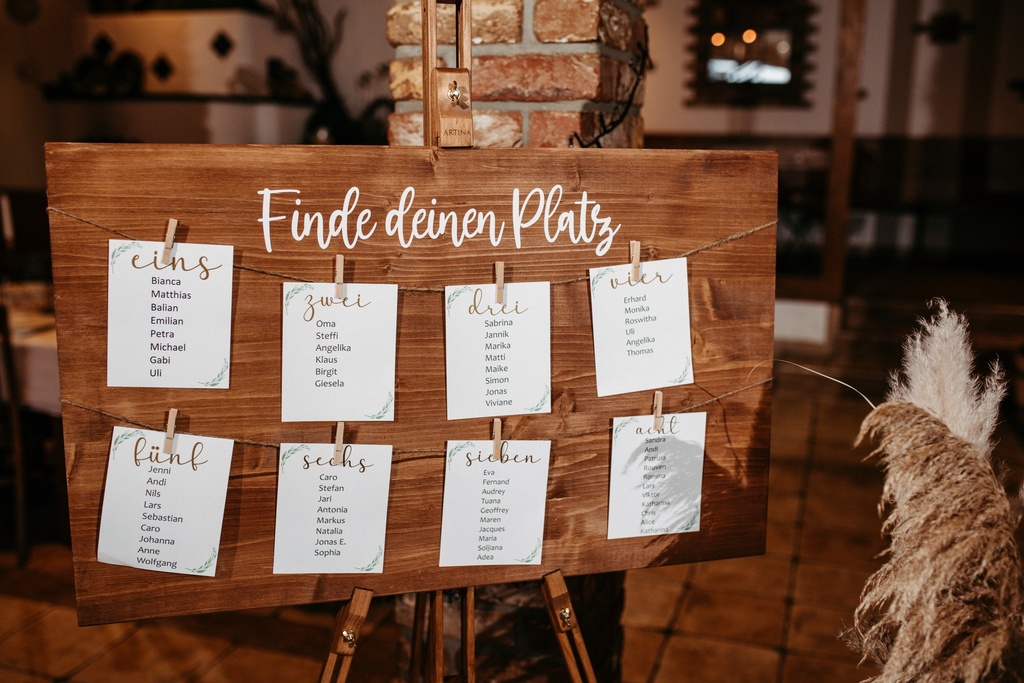 ARTINA
Finde deinen Platz
eins
Bianca
Matthias
Balian
Emilian
Petra
Michael
Gabi
Uli
zwei
Oma
Steffi
Angelika
Klaus
Birgit
Giesela
drei
Sabrina
Jannik
Marika
Matti
Maike
Simon
Jonas
Viviane
vier
Erhard
Monika
Roswitha
Uli
Angelika
Thomas
fünf
Jenni
Andi
Nils
Lars
Sebastian
Caro
Johanna
Anne
Wolfgang
sechs
Caro
Stefan
Jari
Antonia
Markus
Natalia
Jonas E.
Sophia
sieben
Eva
Fernand
Audrey
Tuana
Geoffrey
Maren
Jacques
Maria
Soljana
Adea
acht
Sandra
Andi
Patrizia
Rouven
Romina
Lars
Viktor
Katharina
Chris
Alice
Katharina